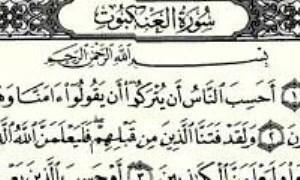 سُورَةُ العَنكَبُوتِ
بِسْمِ اللَّهِ الرَّحْمَٰنِ الرَّحِيمِ
١ أَحَسِبَ النَّاسُ أَن يُتْرَكُوٓا۟ أَن يَقُولُوٓا۟ ءَامَنَّا
٢ وَلَقَدْ فَتَنَّا الَّذِينَ مِن قَبْلِهِمْ فَلَيَعْلَمَنَّ اللَّهُ
الْكَٰذِبِينَ ٣ أَمْ حَسِبَ الَّذِينَ